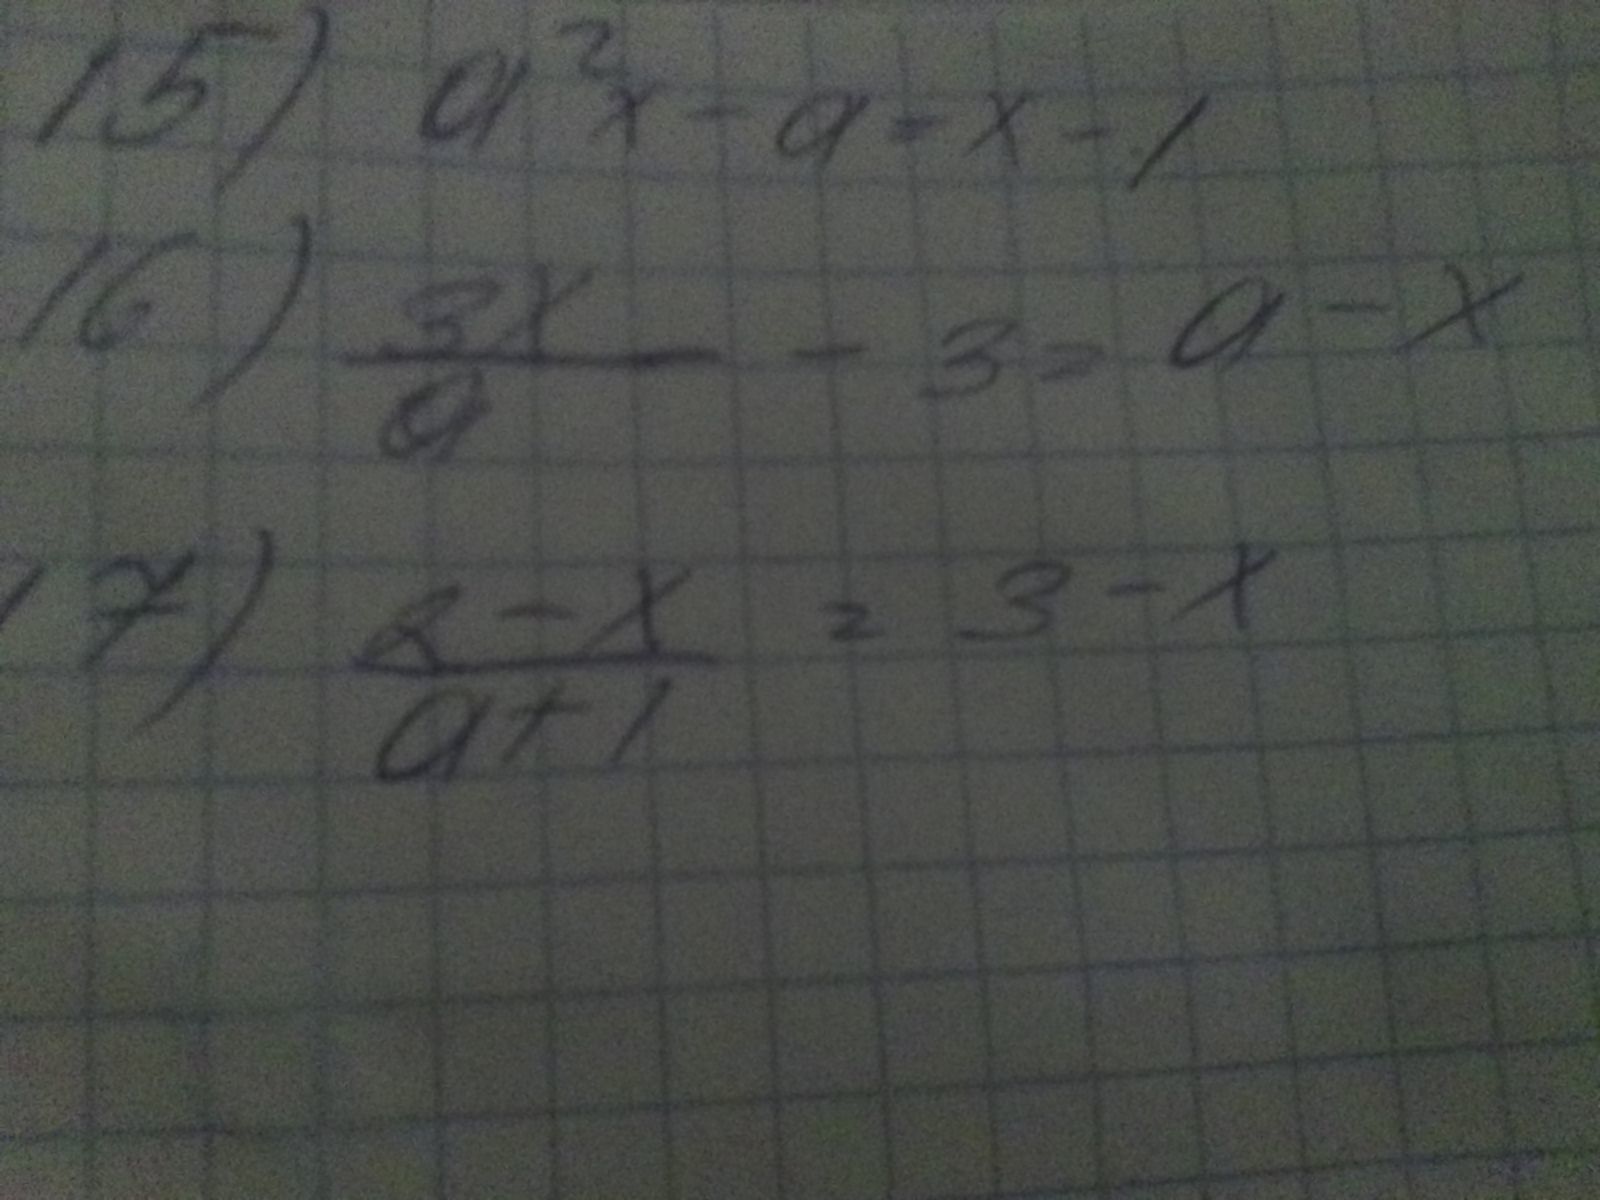 15) a²x - a = x - 1
16) 3x/a - 3 = a - x
17) 2-x/a+1 = 3 - x